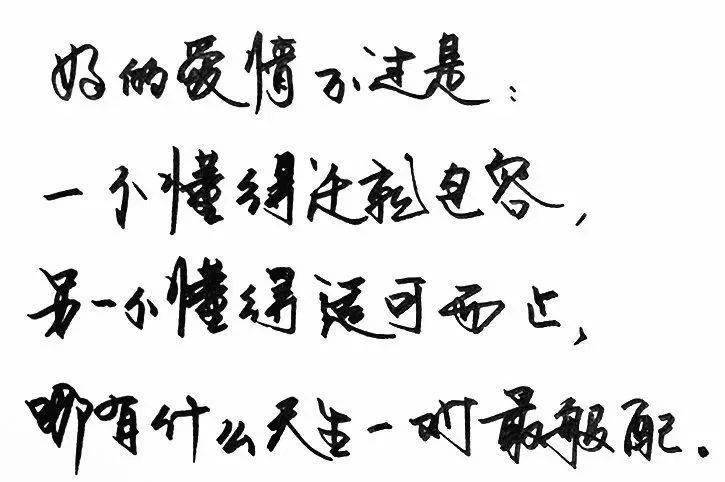 好的爱情不过是：
一个懂得迁就包容，
另一个懂得适可而止，
哪有什么天生一对最般配。